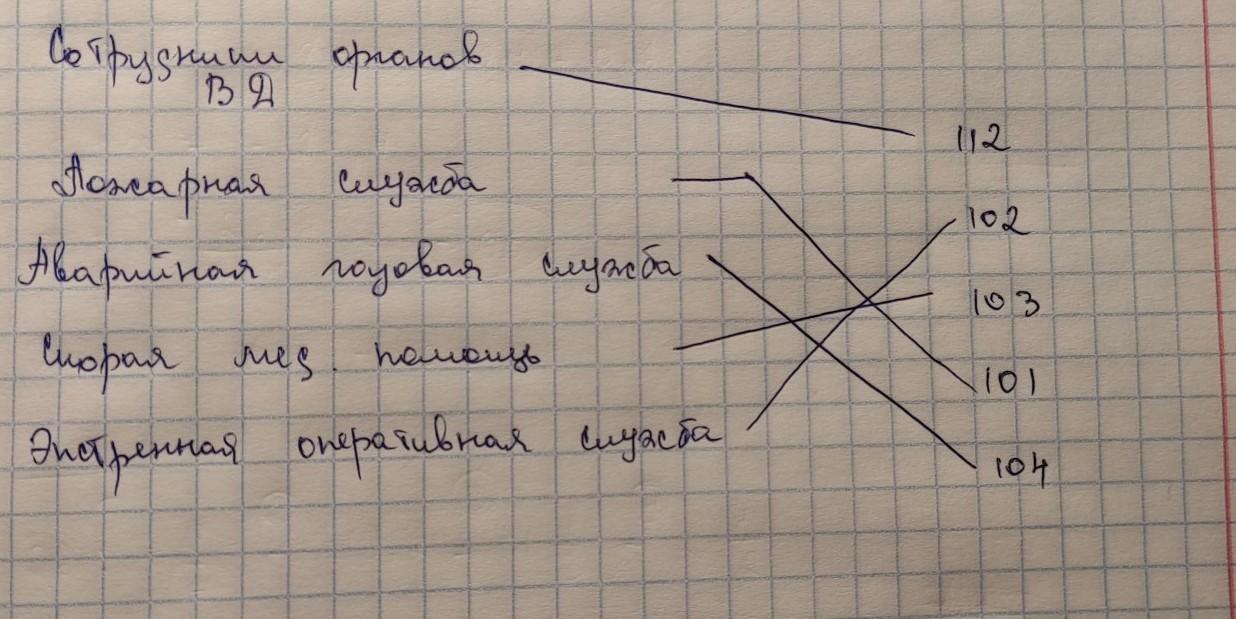 Сотрудники органов
ВД
112
Пожарная служба
102
Аварийная газовая служба
103
Скорая мед. помощь
101
Экстренная оперативная служба
104